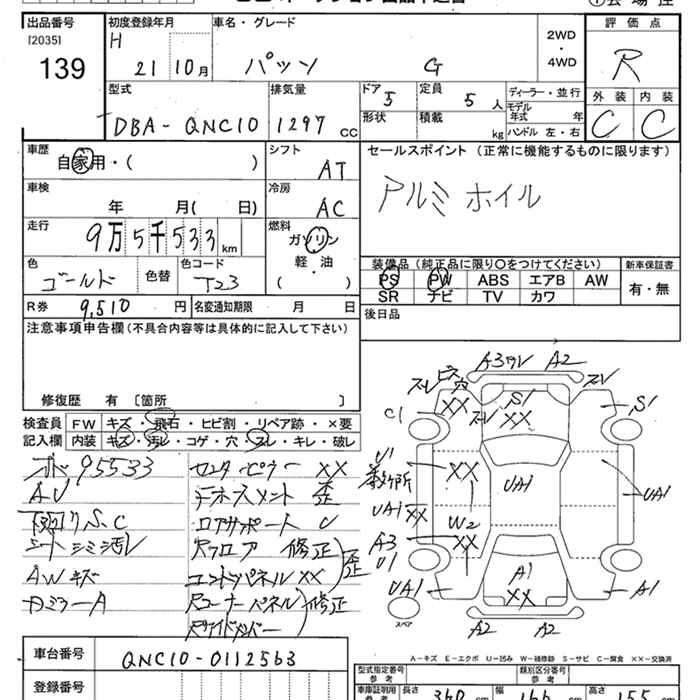 出品番号
[2035]
139
初度登録年月
H 21 10月
車名・グレード
パッソ G
2WD
・
4WD
評価点
R
外装 内装
C C
型式
DBA-QNC10
排気量
1297 CC
ドア 5
形状
定員 5人
積載 kg
ディーラー・並行
モデル年式 年
ハンドル 左・右
車歴
自家用・( )
シフト
AT
セールスポイント (正常に機能するものに限ります)
アルミホイル
車検
年 月( 日)
冷房
AC
走行
9万5千533km
燃料
ガソリン
軽・油
( )
色
ゴールド
色替
色コード
T23
装備品 (純正品に限り○をつけてください)
PS PW ABS エアB AW
SR ナビ TV カワ
新車保証書
有・無
R券 9,510円
名変通知期限 月 日
後日品
注意事項申告欄(不具合内容等は具体的に記入して下さい)
修復歴 有 [箇所 ]
検査員
記入欄
FW キズ・飛石・ヒビ割・リペア跡・×要
内装 キズ・汚レ・コゲ・穴・スレ・キレ・破レ
95533
センターピラー XX
AU
歪
S.C
ロアサポート U
シートシミ汚レ
Rフロア 修正
AWキズ
エンドパネル XX
歪
カミラーA
Rコーナーパネル
修正
Rサイドメンバー
A3ワレ A2
スレ ビス穴
スレ
C1
XX
スレ
S1
XX
S1
U1
XX
UA1
UA1
UA1 XX
W2
A3
U1
XX
UA1
A1
XX
A1
スペア
A2 A2
A-キズ E-エクボ U-凹み W-補修跡 S-サビ C-腐食 XX-交換済
車台番号
QNC10-0112563
登録番号
型式指定番号
参考
類別区分番号
参考
車庫証明用
参考
長さ 360 cm
幅 166 cm
高さ 155 cm